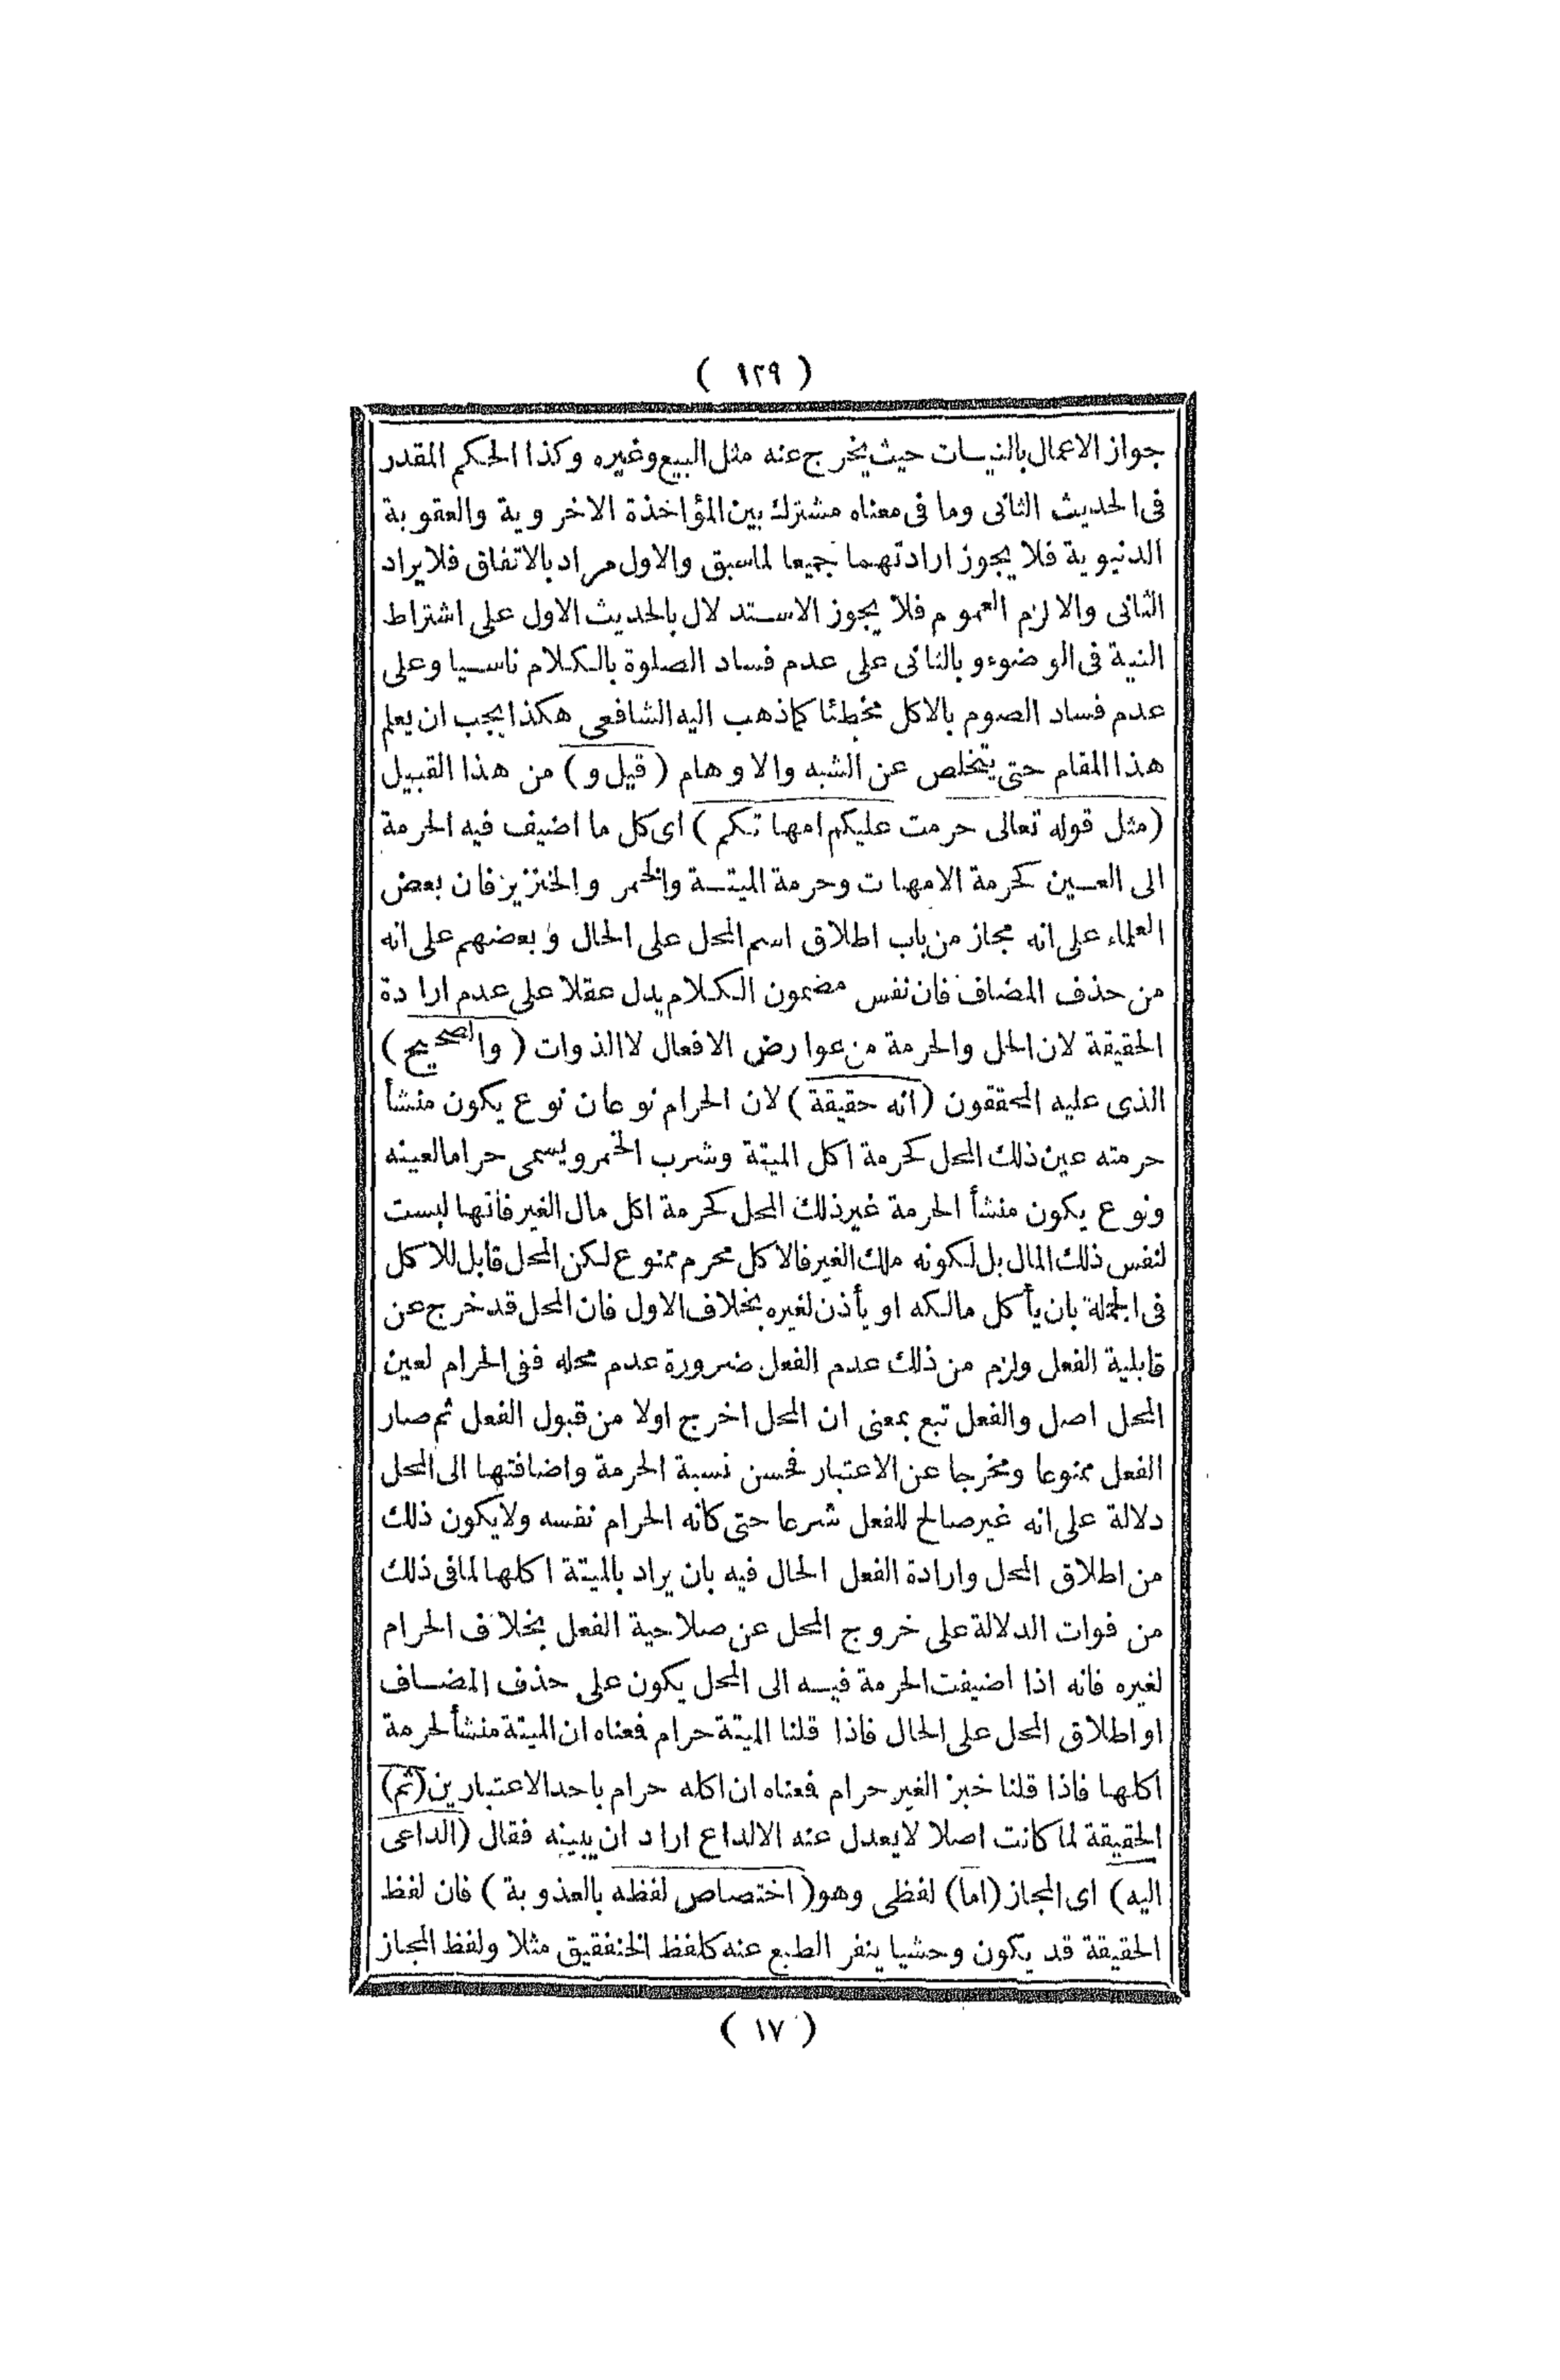 ( ١٢٩ )
جواز الاعمال بالنيات حيث يخرج عنه مثل البيع وغيره وكذا الحكم المقدر
فى الحديث الثانى وما فى معناه مشترك بين المؤاخذة الاخروية والعقوبة
الدنيوية فلا يجوز ارادتهما جميعا لماسبق والاول مراد بالاتفاق فلا يراد
الثانى والا لزم العموم فلا يجوز الاستدلال بالحديث الاول على اشتراط
النية فى الوضوء و بالثانى على عدم فساد الصلوة بالكلام ناسيا وعلى
عدم فساد الصوم بالاكل مخطئا كماذهب اليه الشافعى هكذا يجب ان يعلم
هذا المقام حتى يتخلص عن الشبه والاوهام ( قيل و ) من هذا القبيل
( مثل قوله تعالى حرمت عليكم امهاتكم ) اى كل ما اضيف فيه الحرمة
الى العين كحرمة الامهات وحرمة الميتة والخمر والخنزيز فان بعض
العلماء على انه مجاز من باب اطلاق اسم المحل على الحال وبعضهم على انه
من حذف المضاف فان نفس مضمون الكلام يدل عقلا على عدم ارادة
الحقيقة لان الحل والحرمة من عوارض الافعال لا الذوات ( والصحيح )
الذى عليه المحققون ( انه حقيقة ) لان الحرام نوعان نوع يكون منشأ
حرمته عين ذلك المحل كحرمة اكل الميتة وشرب الخمر ويسمى حراما لعينه
ونوع يكون منشأ الحرمة غير ذلك المحل كحرمة اكل مال الغير فانها ليست
لنفس ذلك المال بل لكونه ملك الغير فالاكل محرم ممنوع لكن المحل قابل للاكل
فى الجملة بان يأكل مالكه او يأذن لغيره بخلاف الاول فان المحل قد خرج عن
قابلية الفعل ولزم من ذلك عدم الفعل ضرورة عدم محله ففى الحرام لعين
المحل اصل والفعل تبع بمعنى ان المحل اخرج اولا من قبول الفعل ثم صار
الفعل ممنوعا ومخرجا عن الاعتبار فحسن نسبة الحرمة واضافتها الى المحل
دلالة على انه غير صالح للفعل شرعا حتى كانه الحرام نفسه ولا يكون ذلك
من اطلاق المحل وارادة الفعل الحال فيه بان يراد بالميتة اكلها لمافى ذلك
من فوات الدلالة على خروج المحل عن صلاحية الفعل بخلاف الحرام
لغيره فانه اذا اضيفت الحرمة فيه الى المحل يكون على حذف المضاف
او اطلاق المحل على الحال فاذا قلنا الميتة حرام فمعناه ان الميتة منشأ لحرمة
اكلها فاذا قلنا خبز الغير حرام فمعناه ان اكله حرام باحد الاعتبارين (ثم)
الحقيقة لما كانت اصلا لا يعدل عنه الا لداع اراد ان يبينه فقال (الداعى
اليه ) اى المجاز (اما) لفظى وهو ( اختصاص لفظه بالعذوبة ) فان لفظ
الحقيقة قد يكون وحشيا ينفر الطبع عنه كلفظ الخنفقيق مثلا ولفظ المجاز
( ١٧ )